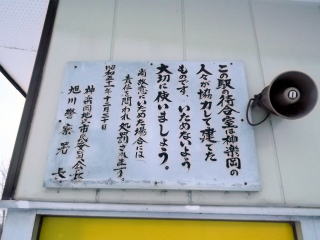 この駅の待合室は神楽岡の
人々が協力して建てた
ものです。いためないよう
大切に使いましょう。
尚故意にいためた場合には
責任を問われ処罰されます。
昭和五十一年十二月二十日
神楽岡地区市民委員会長
旭川警察署長